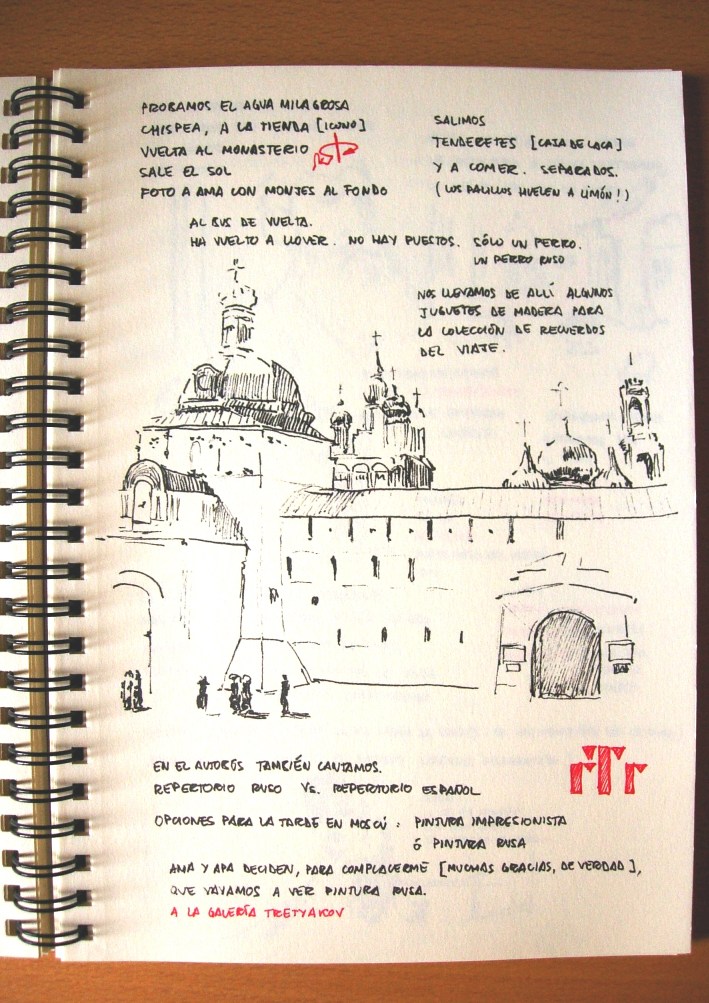 PROBAMOS EL AGUA MILAGROSA
CHISPEA, A LA TIENDA [ICONO]
VUELTA AL MONASTERIO
SALE EL SOL
FOTO A AMA CON MONJES AL FONDO
SALIMOS
TENDERETES [CAJA DE LACA]
Y A COMER. SEPARADOS.
(LOS PALILLOS HUELEN A LIMÓN!)
AL BUS DE VUELTA.
HA VUELTO A LLOVER. NO HAY PUESTOS. SÓLO UN PERRO.
UN PERRO RUSO
NOS LLEVAMOS DE ALLÍ ALGUNOS
JUGUETES DE MADERA PARA
LA COLECCIÓN DE RECUERDOS
DEL VIAJE.
EN EL AUTOBÚS TAMBIÉN CANTAMOS.
REPERTORIO RUSO VS. REPERTORIO ESPAÑOL
OPCIONES PARA LA TARDE EN MOSCÚ: PINTURA IMPRESIONISTA
Ó PINTURA RUSA
AMA Y APA DECIDEN, PARA COMPLACERME [MUCHAS GRACIAS, DE VERDAD],
QUE VAYAMOS A VER PINTURA RUSA.
A LA GALERÍA TRETYAKOV